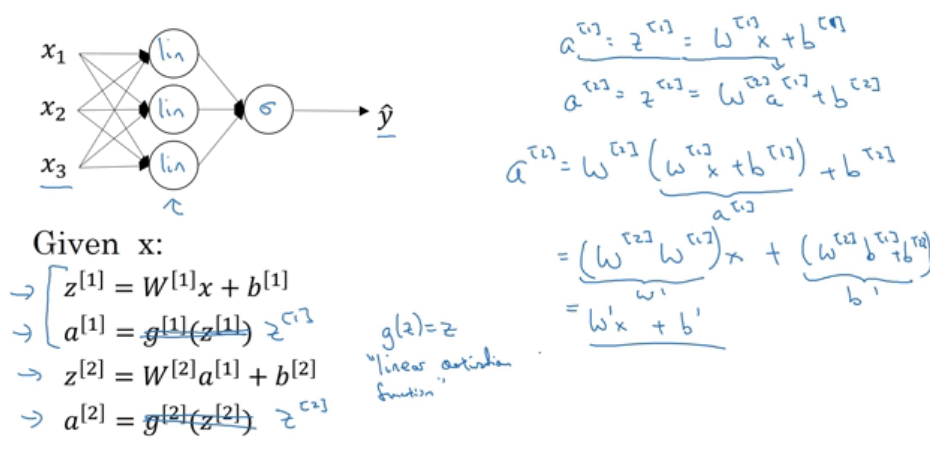 x₁ lin
x₂ lin σ ŷ
x₃ lin
Given x:
→ z^[1] = W^[1]x + b^[1]
→ a^[1] = g^[1](z^[1]) z^[1]
→ z^[2] = W^[2]a^[1] + b^[2]
→ a^[2] = g^[2](z^[2]) z^[2]
g(z) = z
"linear activation
function"
a^[1] = z^[1] = W^[1]x + b^[1]
a^[2] = z^[2] = W^[2]a^[1] + b^[2]
a^[2] = W^[2](W^[1]x + b^[1]) + b^[2]
a^[1]
= (W^[2]W^[1])x + (W^[2]b^[1] + b^[2])
W' b'
= W'x + b'